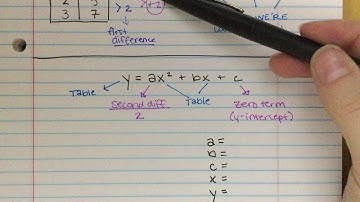 2
3 7
> 2
x+2
WE'RE
first
difference
y = ax² + bx + c
Table
Second diff
2
Table
Zero term
(y-intercept)
a =
b =
c =
x =
y =